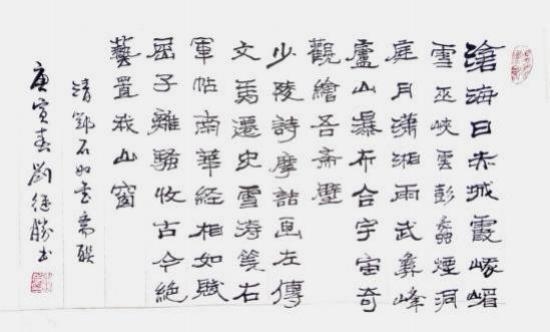 滄海日赤城霞峨嵋
雪巫峽雲彭蠡煙洞
庭月瀟湘雨武彝峰
廬山瀑布合宇宙奇
觀繪吾齋壁
少陵詩摩詰画左傳
文馬遷史雪濤箋右
軍帖南華經相如賦
屈子離騷收古今絕
藝置我山窗
清鄧石如書齋聯
庚寅春劉继勝书